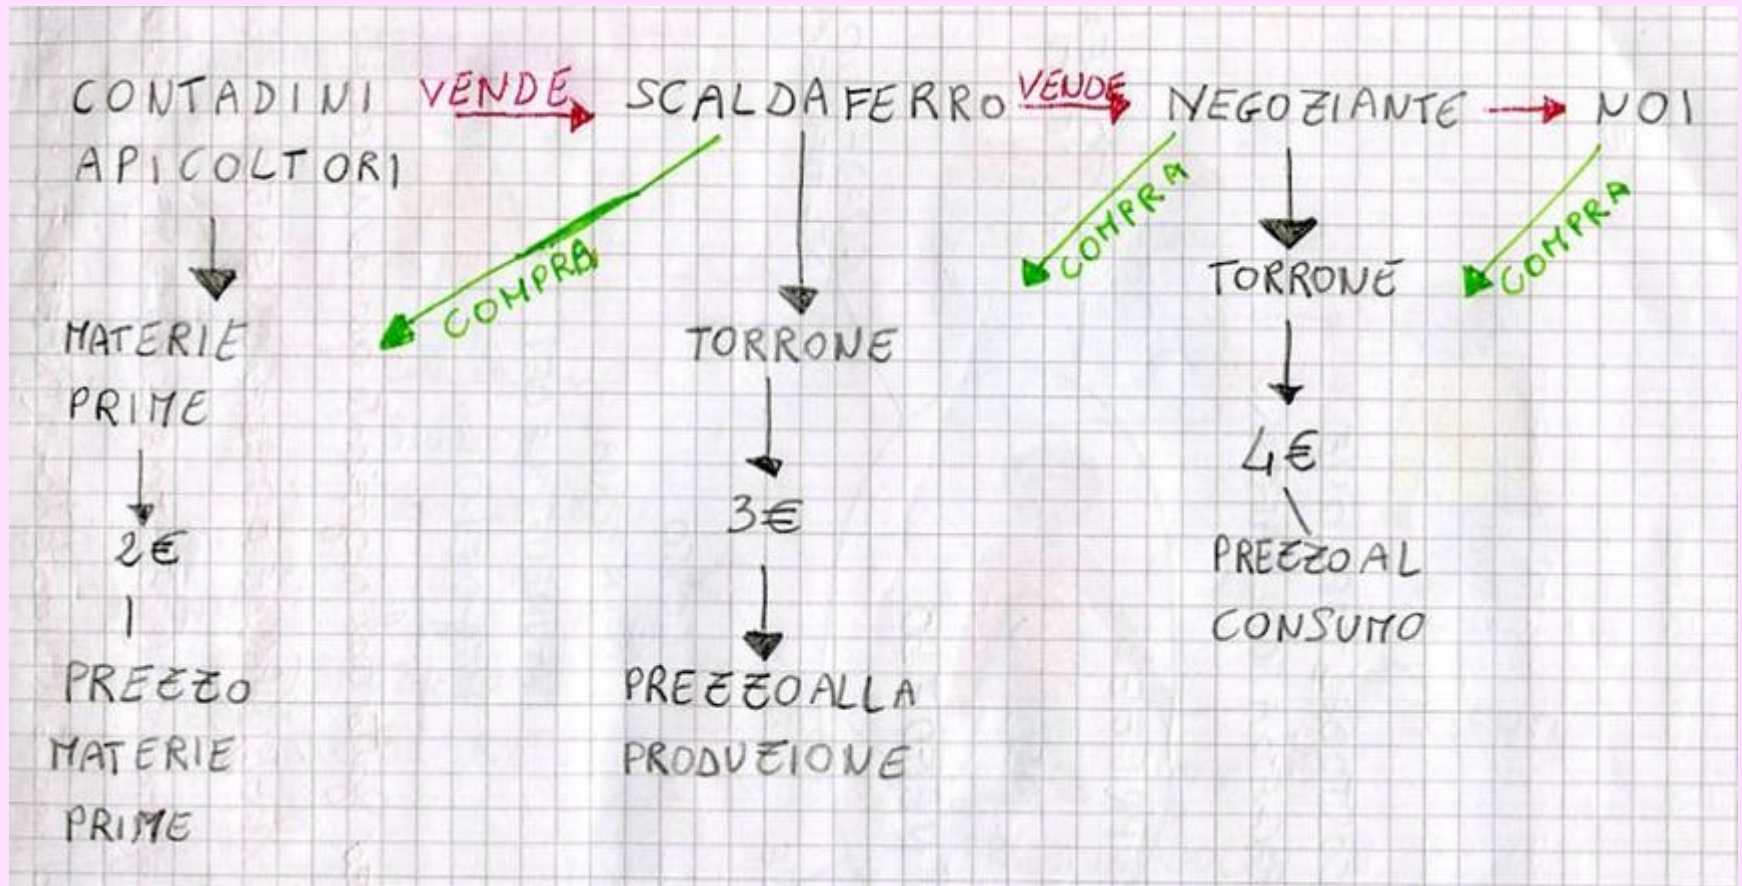 CONTADINI VENDE SCALDAFERRO VENDE NEGOZIANTE NOI
APICOLTORI
COMPRA COMPRA COMPRA
MATERIE
PRIME
2€
PREZZO
MATERIE
PRIME
TORRONE
3€
PREZZO ALLA
PRODUZIONE
TORRONE
4€
PREZZO AL
CONSUMO